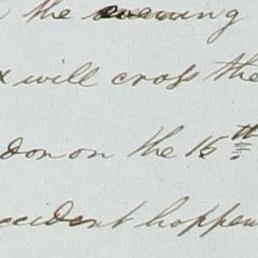 the evening
x will cross the
don on the 15th
ccident happen